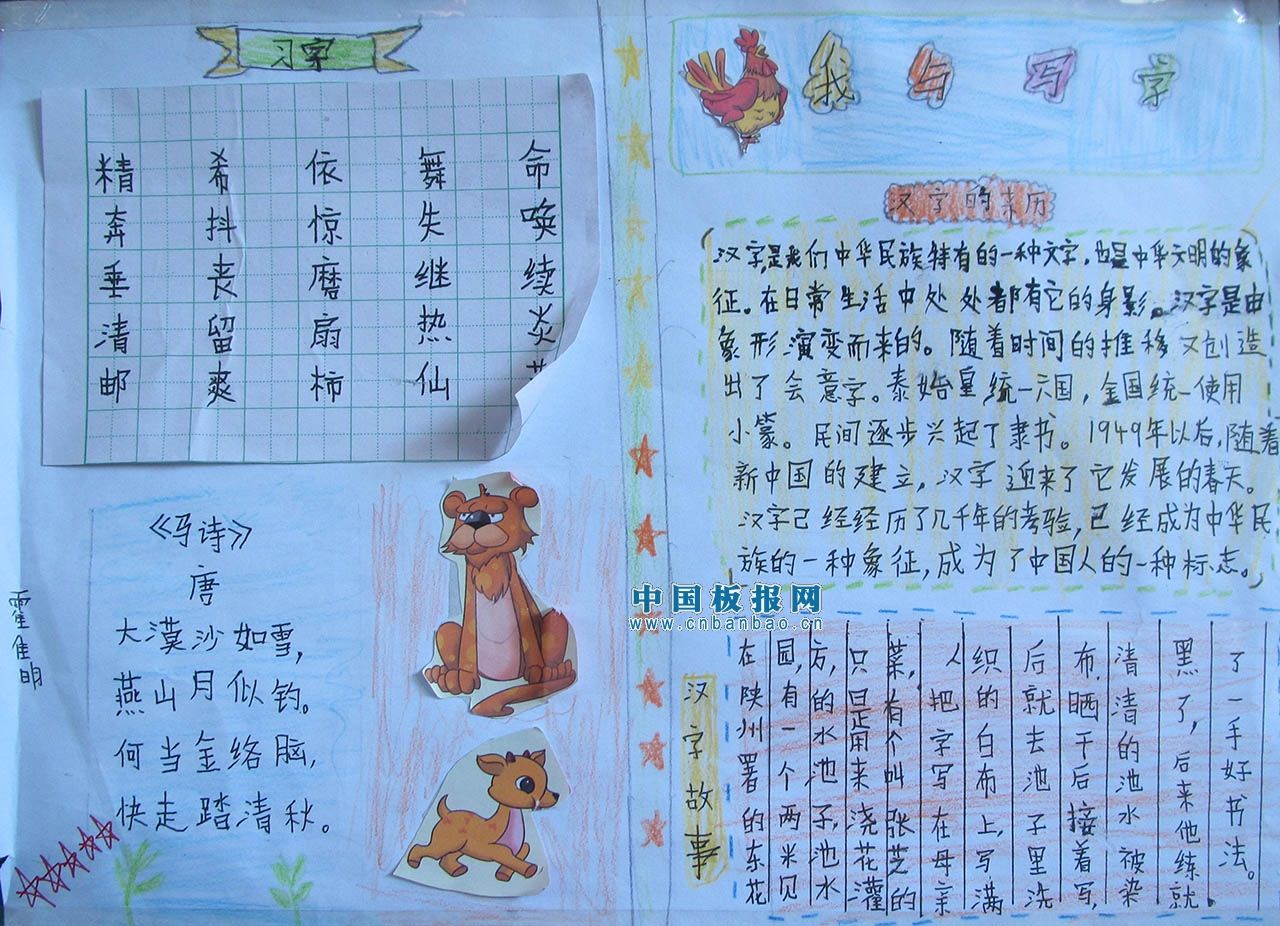 习字
精 希 依 舞 命
奔 抖 惊 失 唤
垂 丧 磨 继 续
清 留 扇 热 炎
邮 爽 柿 仙
《马诗》
唐
大漠沙如雪，
燕山月似钓。
何当金络脑，
快走踏清秋。
霍 明
我与写字
汉字的来历
汉字是我们中华民族特有的一种文字，也是中华文明的象
征。在日常生活中处处都有它的身影。汉字是由
象形演变而来的。随着时间的推移又创造
出了会意字。泰始皇统一六国，全国统一使用
小篆。民间逐步兴起了隶书。1949年以后，随着
新中国的建立，汉字迎来了它发展的春天。
汉字已经经历了几千年的考验，已经成为中华民
族的一种象征，成为了中国人的一种标志。
中国板报网
www.cnbanbao.cn
汉字故事
在陕州署的东花
园，有一个两米见
方，的水池子，池水
只是用来浇花灌
菜，有个叫张芝的
人把字写在母亲
织的白布上，写满
后就去池子里洗
布，晒干后接着写，
清清的池水被染
黑了，后来他练就
了一手好书法。